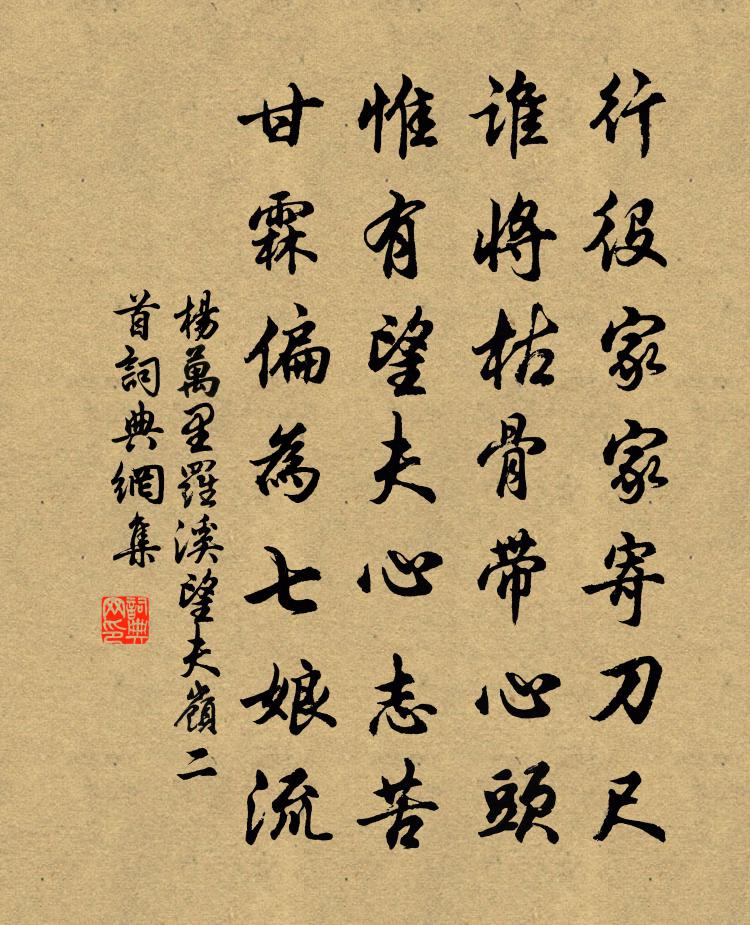 行役家家寄刀尺
誰將枯骨帶心頭
惟有望夫心志苦
甘霖偏為七娘流
楊萬里羅溪望夫嶺二
首詞典網集
詞典
网印